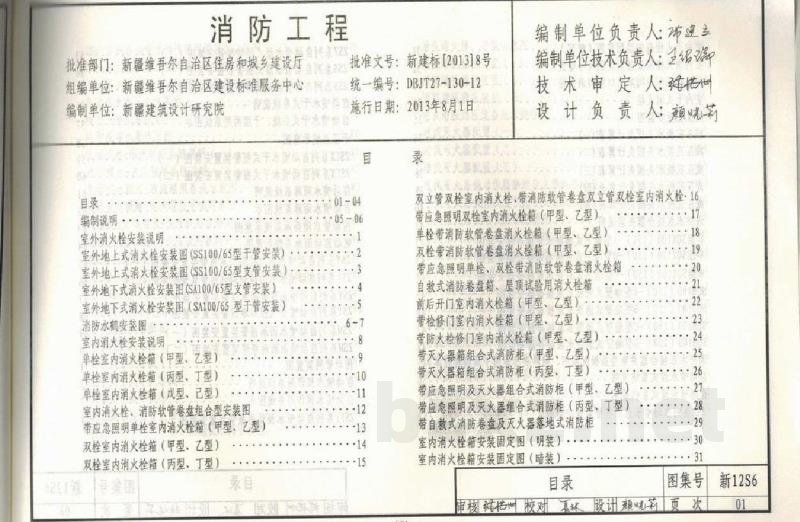 消防工程
批准部门: 新疆维吾尔自治区住房和城乡建设厅
组编单位: 新疆维吾尔自治区建设标准服务中心
编制单位: 新疆建筑设计研究院
批准文号: 新建标[2013]8号
统一编号: DBJT27-130-12
施行日期: 2013年8月1日
编制单位负责人:
编制单位技术负责人:
技术审定人:
设计负责人:
目 录
目录 01-04
编制说明 05-06
室外消火栓安装说明 1
室外地上式消火栓安装图(SS100/65型干管安装) 2
室外地上式消火栓安装图(SS100/65型支管安装) 3
室外地下式消火栓安装图(SA100/65型支管安装) 4
室外地下式消火栓安装图(SA100/65 型干管安装) 5
消防水鹤安装图 6-7
室内消火栓安装说明 8
单栓室内消火栓箱(甲型、乙型) 9
单栓室内消火栓箱(丙型、丁型) 10
单栓室内消火栓箱(戊型、己型) 11
室内消火栓、消防软管卷盘组合型安装图 12
带应急照明单栓室内消火栓箱(甲型、乙型) 13
双栓室内消火栓箱(甲型、乙型) 14
双栓室内消火栓箱(丙型、丁型) 15
双立管双栓室内消火栓、带消防软管卷盘双立管双栓室内消火栓 16
带应急照明双栓室内消火栓箱(甲型、乙型) 17
单栓带消防软管卷盘消火栓箱(甲型、乙型) 18
双栓带消防软管卷盘消火栓箱(甲型、乙型) 19
带应急照明单栓、双栓带消防软管卷盘消火栓箱 20
自救式消防卷盘箱、屋顶试验用消火栓箱 21
前后开门室内消火栓箱(甲型、乙型) 22
带检修门室内消火栓箱(甲型、乙型) 23
带防火检修门室内消火栓箱(甲型、乙型) 24
带灭火器箱组合式消防柜(甲型、乙型) 25
带灭火器箱组合式消防柜(丙型、丁型) 26
带应急照明及灭火器组合式消防柜(甲型、乙型) 27
带应急照明及灭火器组合式消防柜(丙型、丁型) 28
带自救式消防卷盘及灭火器落地式消防柜 29
室内消火栓箱安装固定图(明装) 30
室内消火栓箱安装固定图(暗装) 31
目录 图集号 新12S6
审核 校对 设计 页次 01